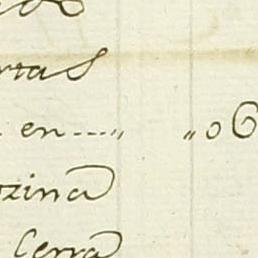 rtas
en----„ „06
ozina
Cerra